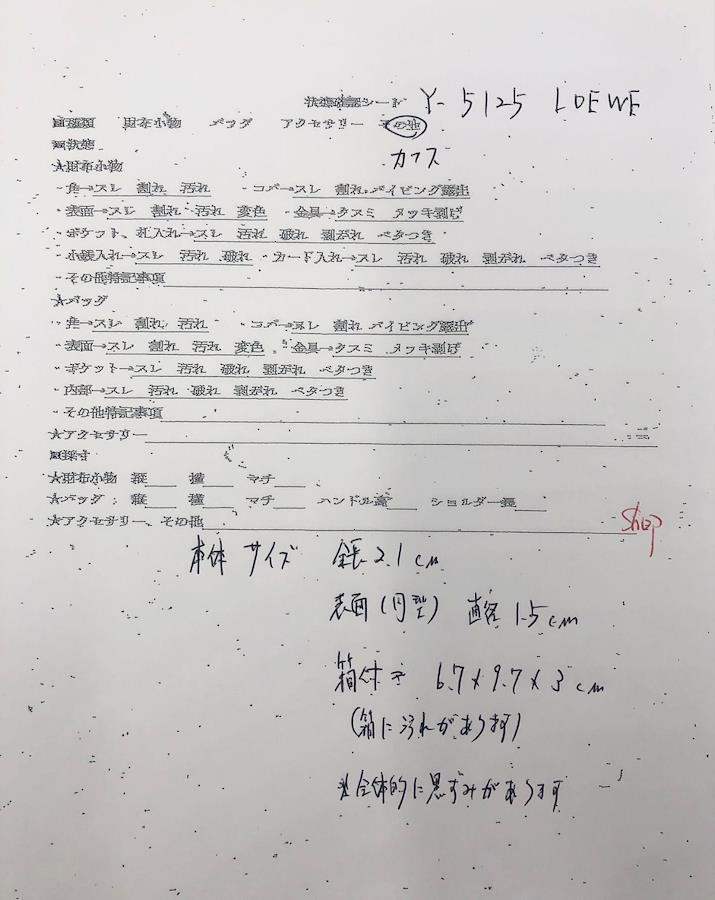 状態確認シート Y-5125 LOEWE
■種類 財布小物 バッグ アクセサリー その他
カフス
■状態
★財布小物
・角→スレ 割れ 汚れ ・コバ→スレ 割れ パイピング露出
・表面→スレ 割れ 汚れ 変色 ・金具→クスミ メッキ剥げ
・ポケット、札入れ→スレ 汚れ 破れ 剥がれ ベタつき
・小銭入れ→スレ 汚れ 破れ ・カード入れ→スレ 汚れ 破れ 剥がれ ベタつき
・その他特記事項
★バッグ
・角→スレ 割れ 汚れ ・コバ→スレ 割れ パイピング露出
・表面→スレ 割れ 汚れ 変色 ・金具→クスミ メッキ剥げ
・ポケット→スレ 汚れ 破れ 剥がれ ベタつき
・内部→スレ 汚れ 破れ 剥がれ ベタつき
・その他特記事項
★アクセサリー
■採寸
★財布小物 縦 横 マチ
★バッグ: 縦 横 マチ ハンドル高 ショルダー長
★アクセサリー、その他
shop
本体サイズ 全長2.1cm
表面(円型) 直径1.5cm
箱付き 6.7×9.7×3cm
(箱に汚れがあります)
※全体的に黒ずみがあります